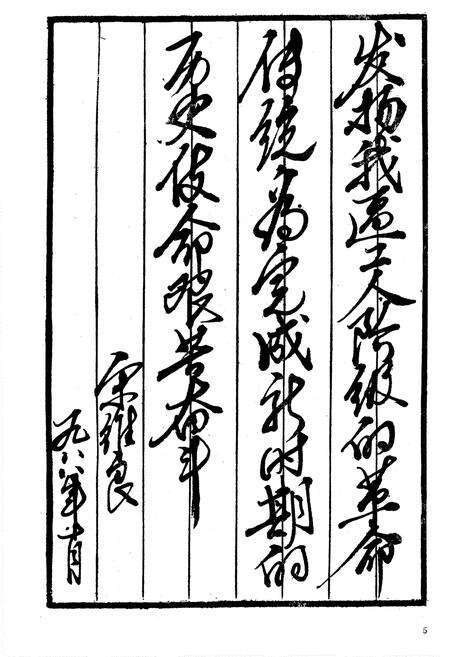 发扬我區工人阶级的革命
传统，为完成新时期的
历史使命艰苦奋斗
宋维良
一九八六年十月
5